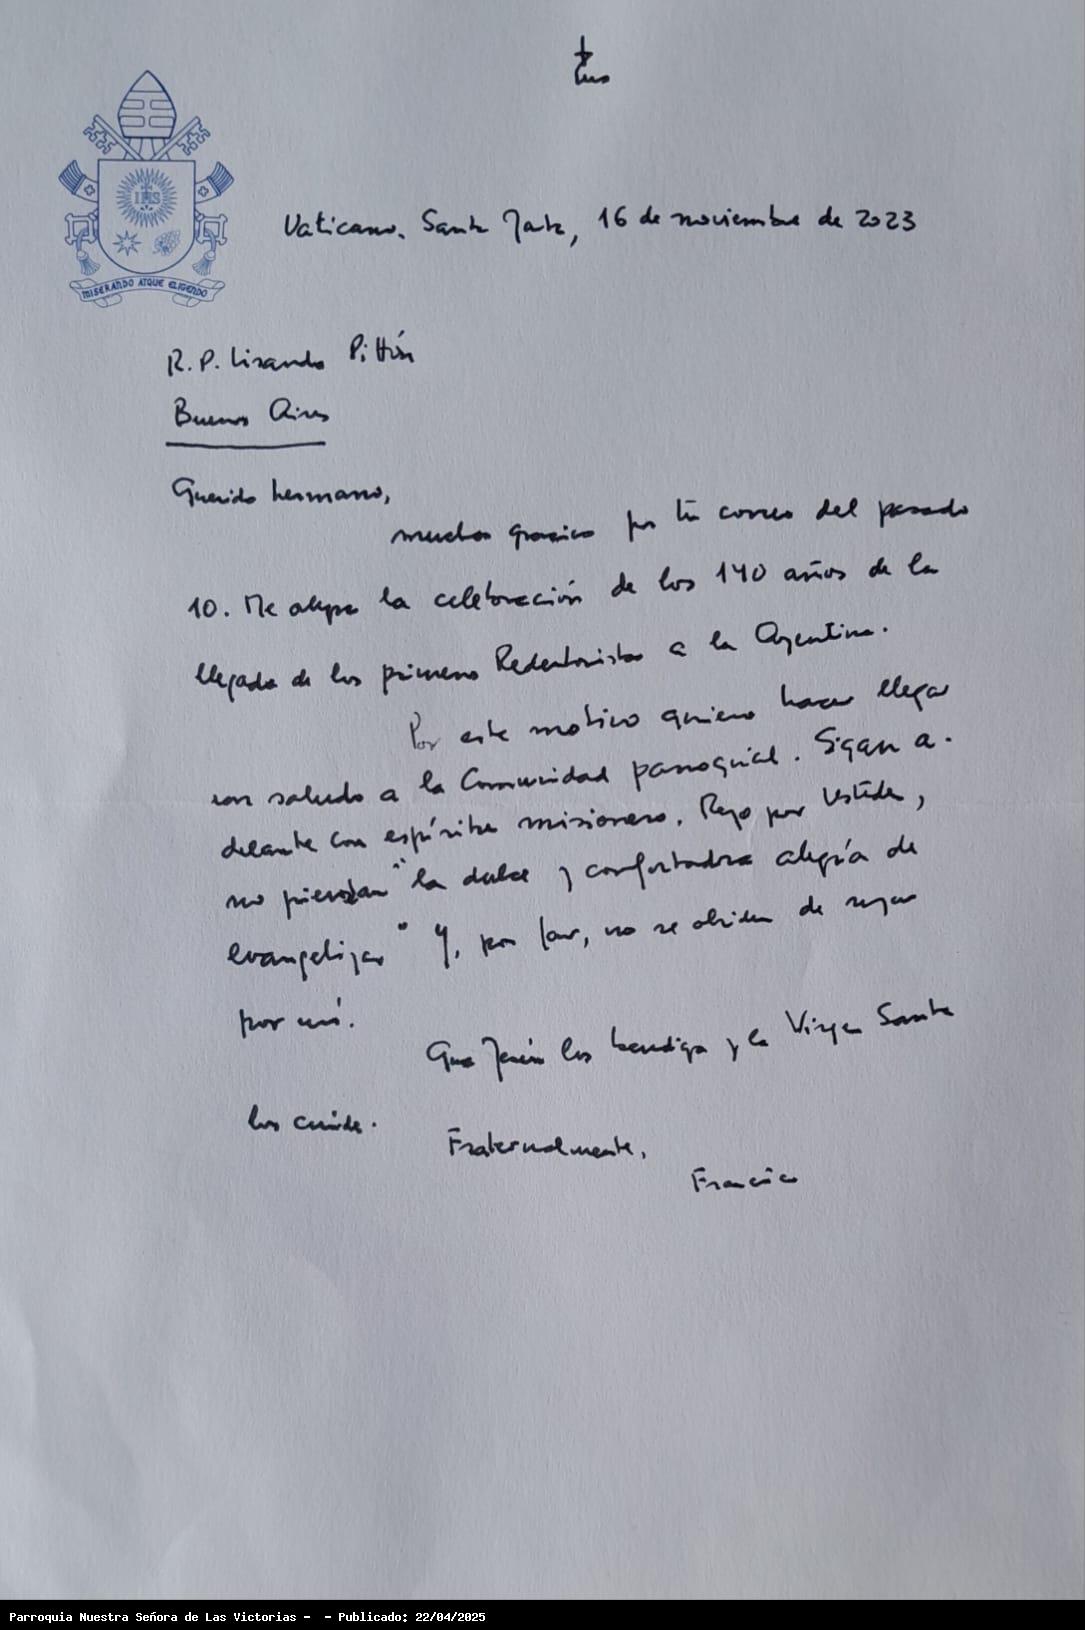 IHS
MISERANDO ATQUE ELIGENDO
Vaticano. Santa Marta, 16 de noviembre de 2023
R. P. Lisandro Pittón
Buenos Aires
Querido hermano,
muchas gracias por tu correo del pasado
10. Me alegra la celebración de los 140 años de la
llegada de los primeros Redentoristas a la Argentina.
Por este motivo quiero hacer llegar
un saludo a la Comunidad parroquial. Sigan a-
delante con espíritu misionero. Rezo por Ustedes,
no pierdan "la dulce y confortadora alegría de
evangelizar" Y, por favor, no se olviden de rezar
por mí.
Que Jesús los bendiga y la Virgen Santa
los cuide.
Fraternalmente,
Francisco
Parroquia Nuestra Señora de Las Victorias -  - Publicado: 22/04/2025